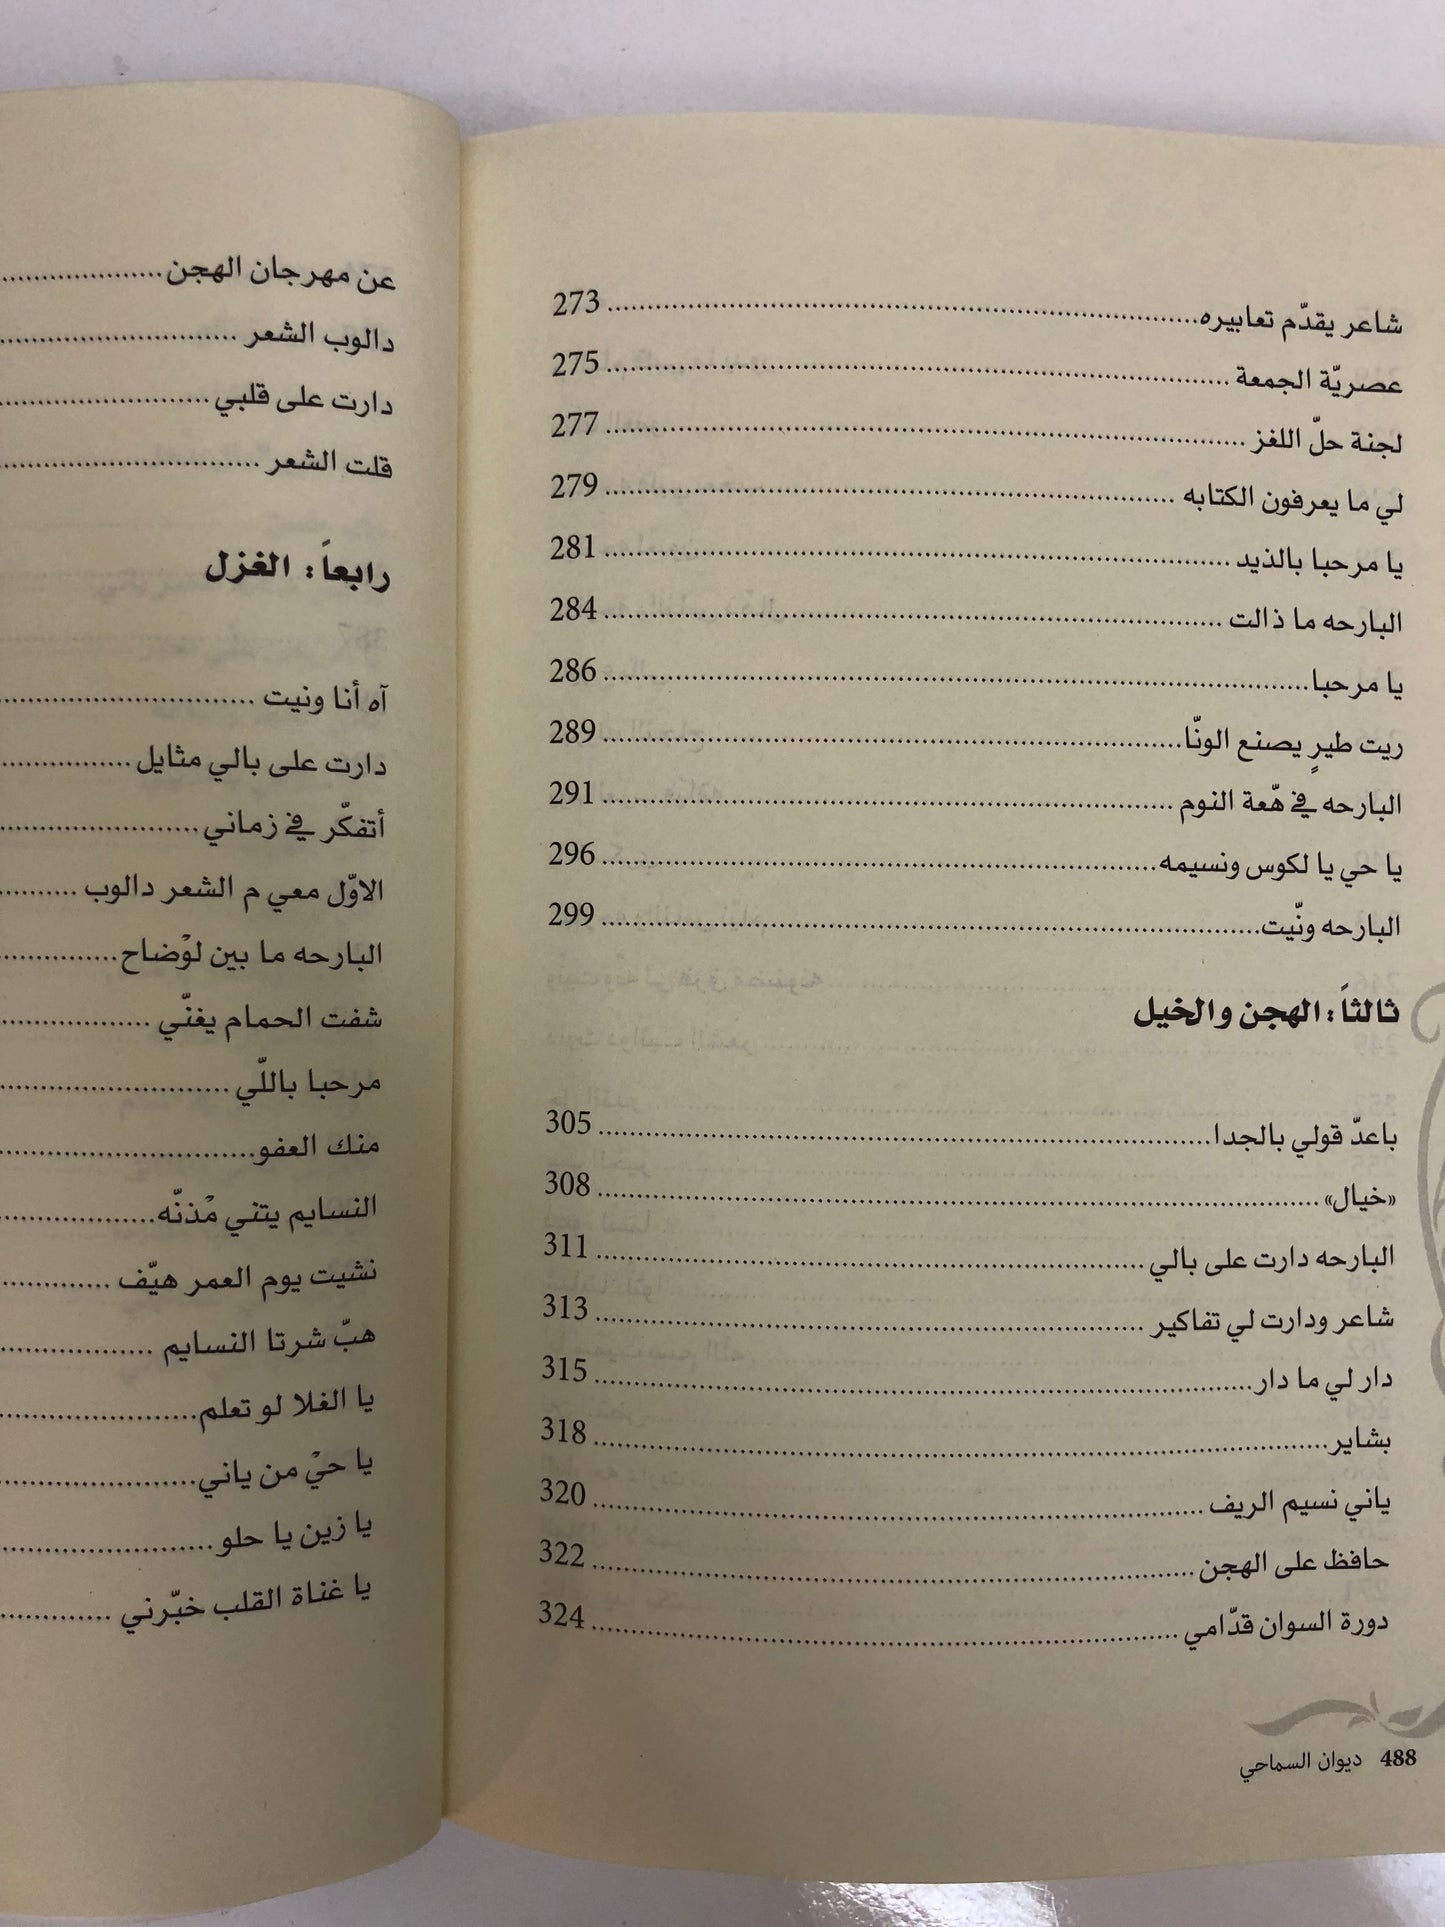 شاعر يقدّم تعابيره ........ 273
عصريّة الجمعة ........ 275
لجنة حلّ اللغز ........ 277
لي ما يعرفون الكتابه ........ 279
يا مرحبا بالذيد ........ 281
البارحه ما ذالت ........ 284
يا مرحبا ........ 286
ريت طيرٍ يصنع الونّا ........ 289
البارحه في هّعة النوم ........ 291
يا حي يا لكوس ونسيمه ........ 296
البارحه ونّيت ........ 299
ثالثاً: الهجن والخيل
باعدّ قولي بالجدا ........ 305
«خيال» ........ 308
البارحه دارت على بالي ........ 311
شاعر ودارت لي تفاكير ........ 313
دار لي ما دار ........ 315
بشاير ........ 318
ياني نسيم الريف ........ 320
حافظ على الهجن ........ 322
دورة السوان قدّامي ........ 324
488 ديوان السماحي
عن مهرجان الهجن ........
دالوب الشعر ........
دارت على قلبي ........
قلت الشعر ........
رابعاً: الغزل
آه أنا ونيت ........
دارت على بالي مثايل ........
أتفكّر في زماني ........
الاوّل معي م الشعر دالوب ........
البارحه ما بين لوْضاح ........
شفت الحمام يغنّي ........
مرحبا باللّي ........
منك العفو ........
النسايم يتني مْذنّه ........
نشيت يوم العمر هيّف ........
هبّ شرتا النسايم ........
يا الغلا لو تعلم ........
يا حيْ من ياني ........
يا زين يا حلو ........
يا غناة القلب خبّرني ........